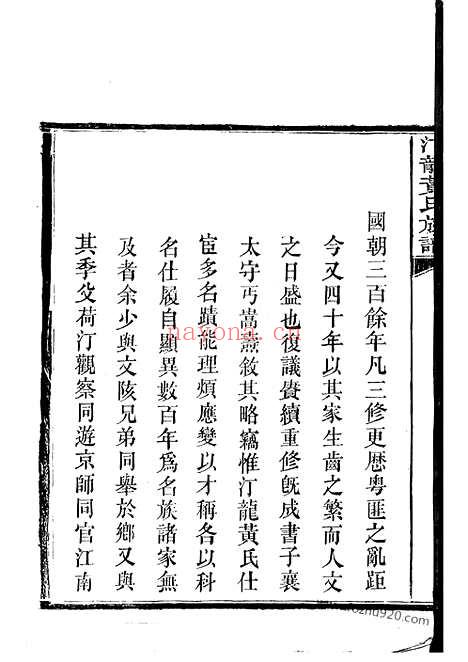 汀龍黃氏族譜
國朝三百餘年凡三修更歷粵匪之亂距
今又四十年以其家生齒之繁而人文
之日盛也復議賡續重修既成書子襄
太守丐嵩燾敘其略竊惟汀龍黃氏仕
宦多名蹟能理煩應變以才稱各以科
名仕履自顯異數百年爲名族諸家無
及者余少與文陔兄弟同舉於鄉又與
其季父荷汀觀察同遊京師同官江南
nayona.cn
yaozhu920.com